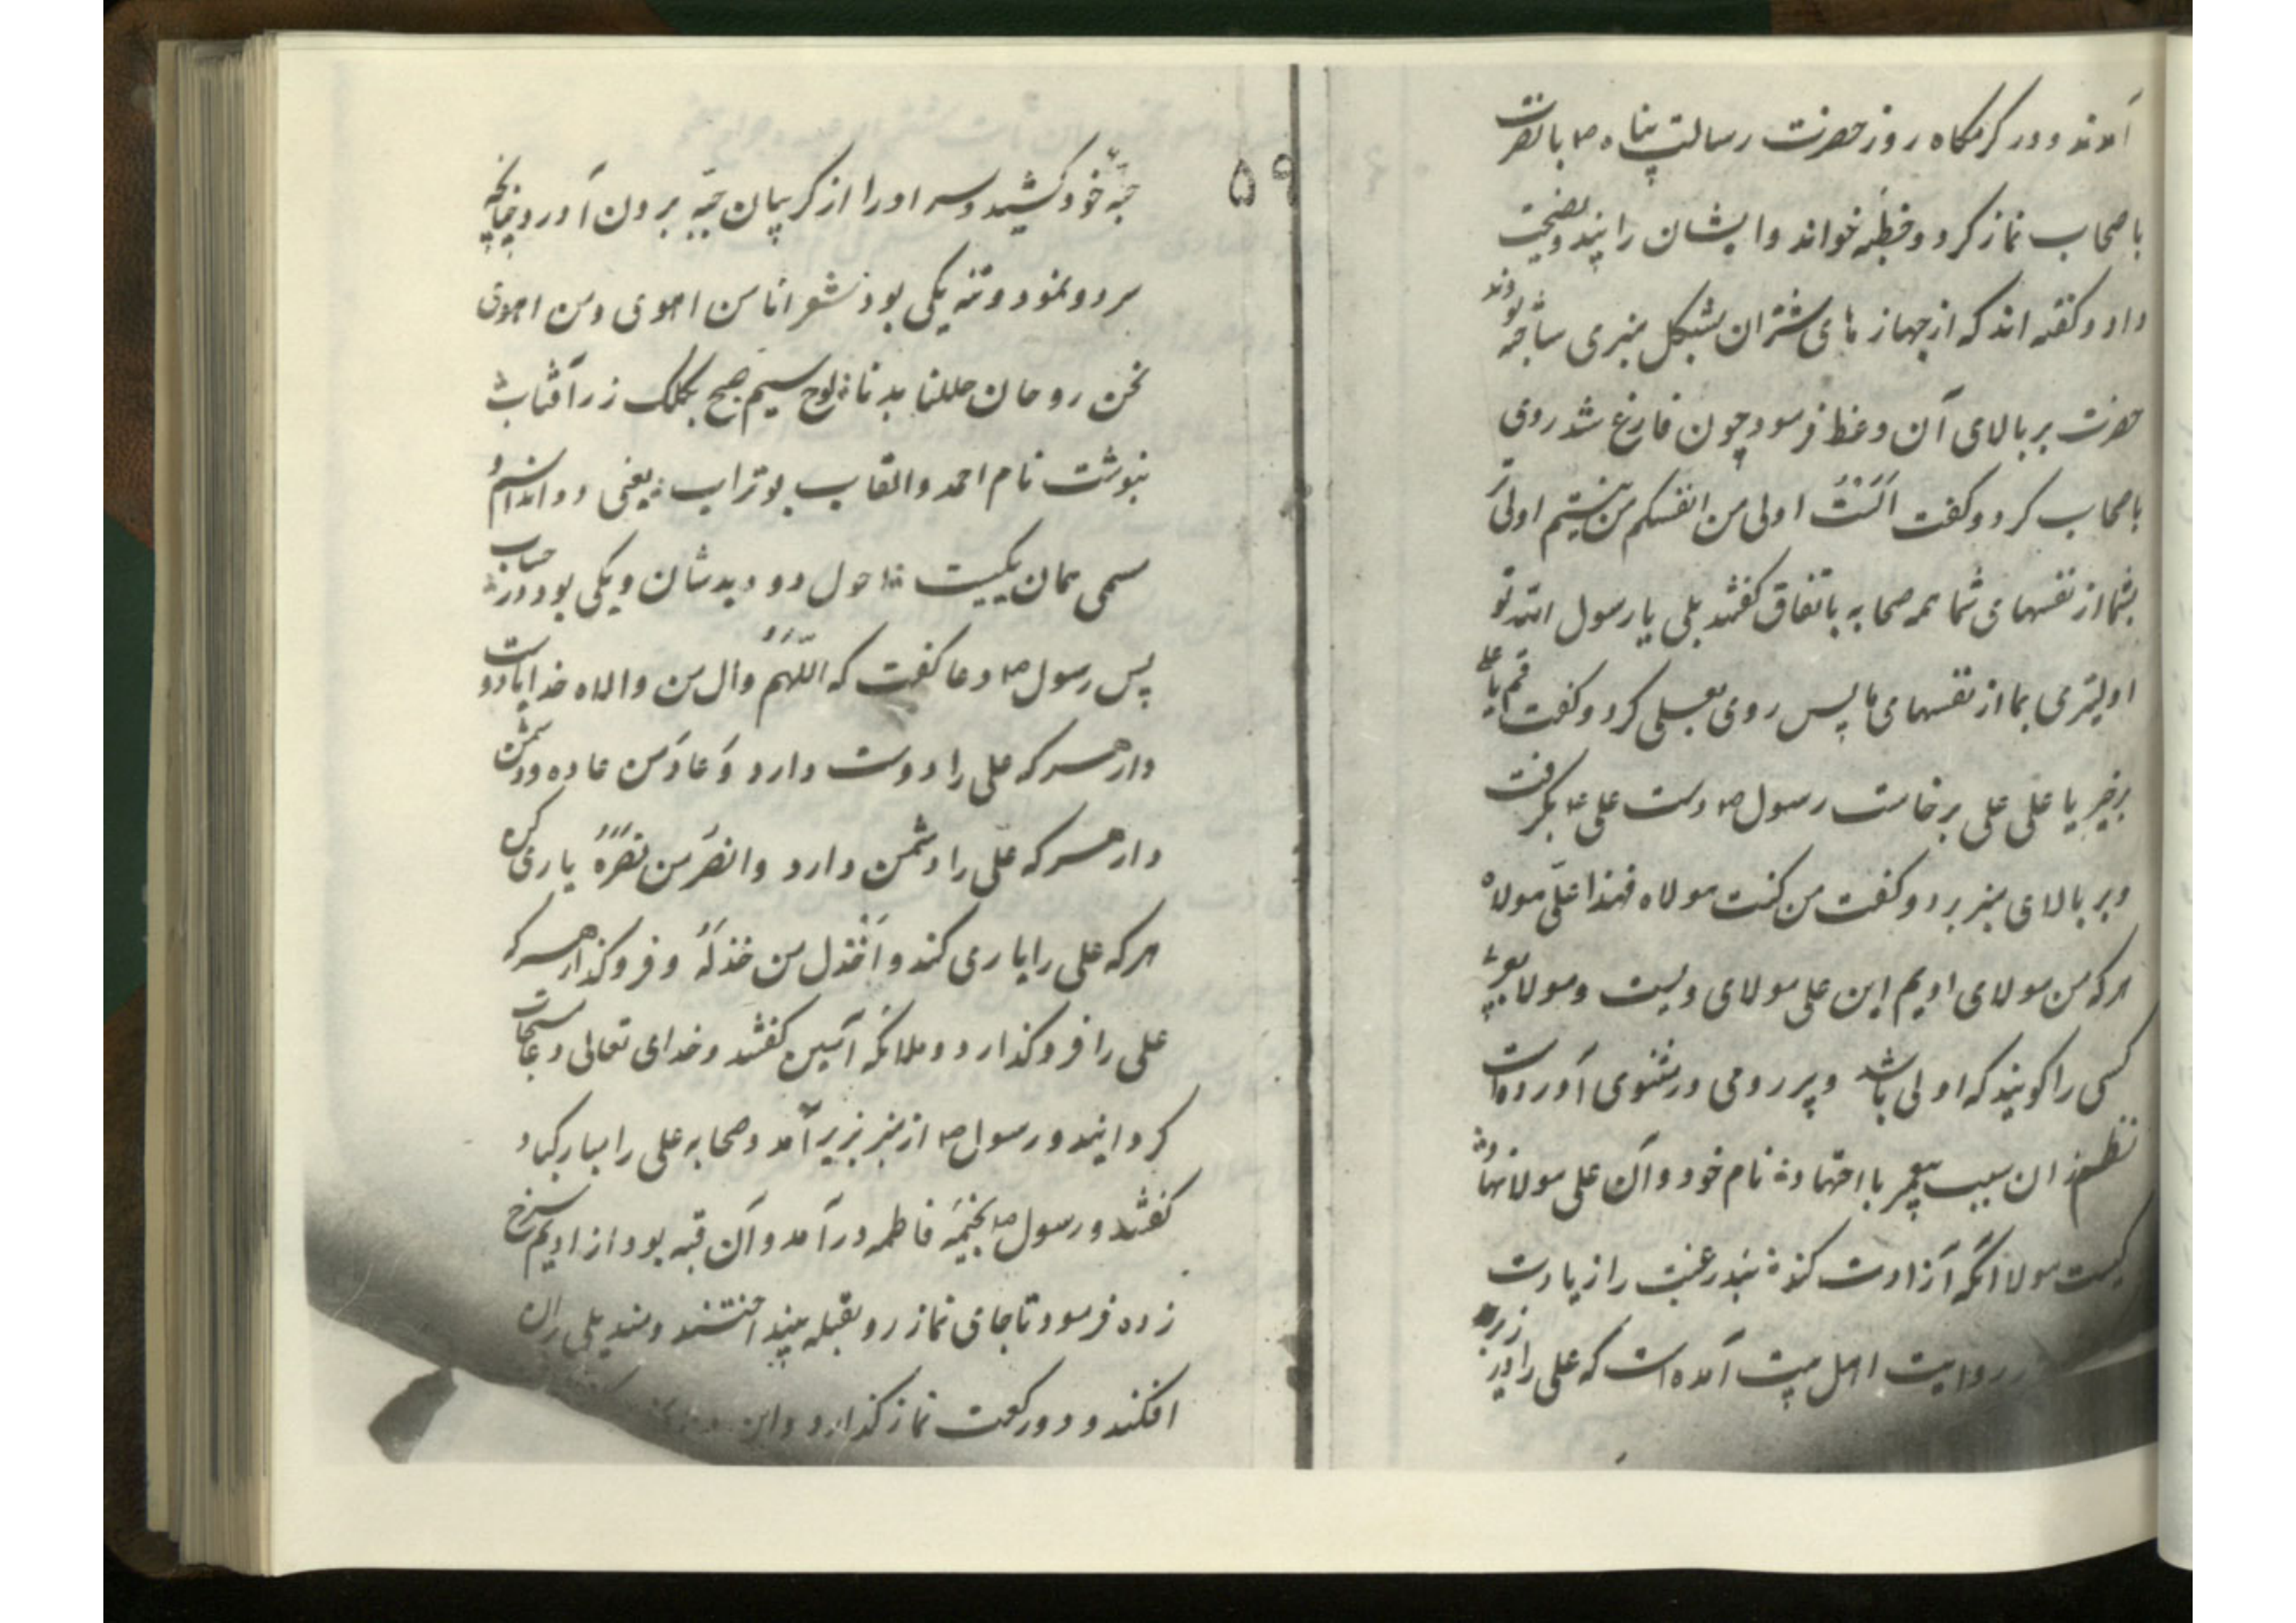 آمدند و در کرمکاه روز حضرت رسالت پناه ص با
باصحاب نماز کرد و خطبه خواند و ایشان را پند و نصیحت
داد و کفته اند که از جهاز های شتران بشکل منبری ساخته بودند
حضرت بر بالای آن وعظ فرمود چون فارغ شد روی
باصحاب کرد و کفت اَلَسْتُ اولی من انفسکم من نیستم اولی تر
بشما از نفسهای شما همه صحابه باتفاق کفتند بلی یا رسول الله تو
اولیتری بما از نفسهای ما پس روی بعلی کرد و کفت قم یا علی
برخیز یا علی علی برخاست رسول ص دست علی ع بکرفت
و بر بالای منبر برد و کفت من کنت مولاه فهذا علی مولاه
هر که من مولای اویم این علی مولای ویست و مولا بعربیة
کسی را کویند که اولی باشد و پیر رومی در مثنوی آورده است
نظم زان سبب پیغمبر با اجتهاد نام خود وان علی مولا نهاد
کیست مولا آنکه آزادت کند بند رقیت را ز پایت
در روایت اهل بیت آمده است که علی را در زیر
۵۹
جبّه خود کشید و سر او را از کریبان جبّه برون آورد چنانچه
سر دو نمود و تنه یکی بود شعر انا من اهوی و من اهوی
نحن روحان حللنا بدنا لوح سیم صبح بکلک زر آفتاب
نبوشت نام احمد و القاب بوتراب یعنی دو اند اسم و
مسمی همان یکیست احول دو دید شان و یکی بود در حساب
پس رسول ص دعا کفت که اللّهُمَّ وال من والاه خدایا دوست
دار هر که علی را دوست دارد وَ عادَ من عاده و دشمن
دار هر که علی را دشمن دارد وانصَر من نَصَرَهُ یاری کن
هر که علی را یاری کند و اَخْذل من خَذَلَهُ و فروکذار هر که
علی را فروکذارد و ملائکه آمین کفتند و خدای تعالی دعا مستجاب
کردانید و رسول ص از منبر بزیر آمد و صحابه علی را مبارکباد
کفتند و رسول ص بخیمهٔ فاطمه در آمد و آن قبه بود از ادیم سرخ
زده فرمود تا جای نماز رو بقبله بینداختند و مندیلی بران
افکند و دو رکعت نماز کذارد و این